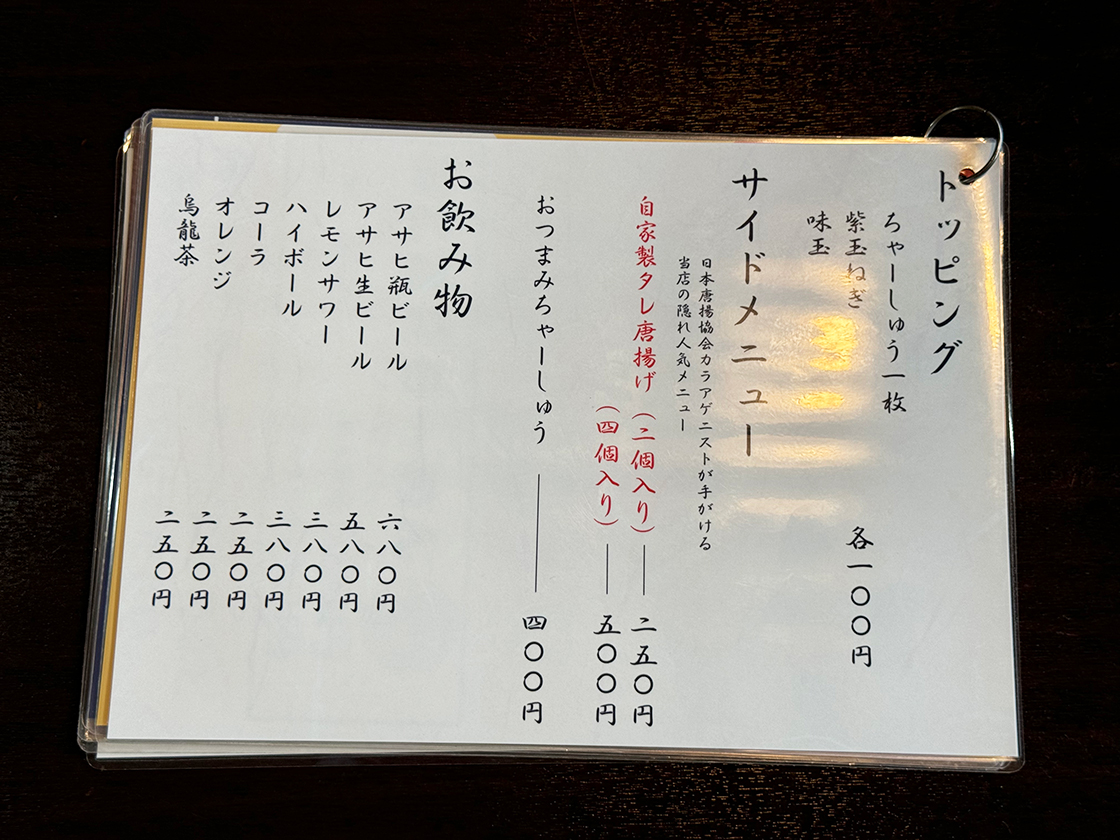 トッピング
ちゃーしゅう一枚
紫玉ねぎ
味玉
各一〇〇円
サイドメニュー
日本唐揚協会カラアゲニストが手がける
当店の隠れ人気メニュー
自家製タレ唐揚げ（二個入り）――二五〇円
（四個入り）――五〇〇円
おつまみちゃーしゅう――四〇〇円
お飲み物
アサヒ瓶ビール 六八〇円
アサヒ生ビール 五八〇円
レモンサワー 三八〇円
ハイボール 三八〇円
コーラ 二五〇円
オレンジ 二五〇円
烏龍茶 二五〇円